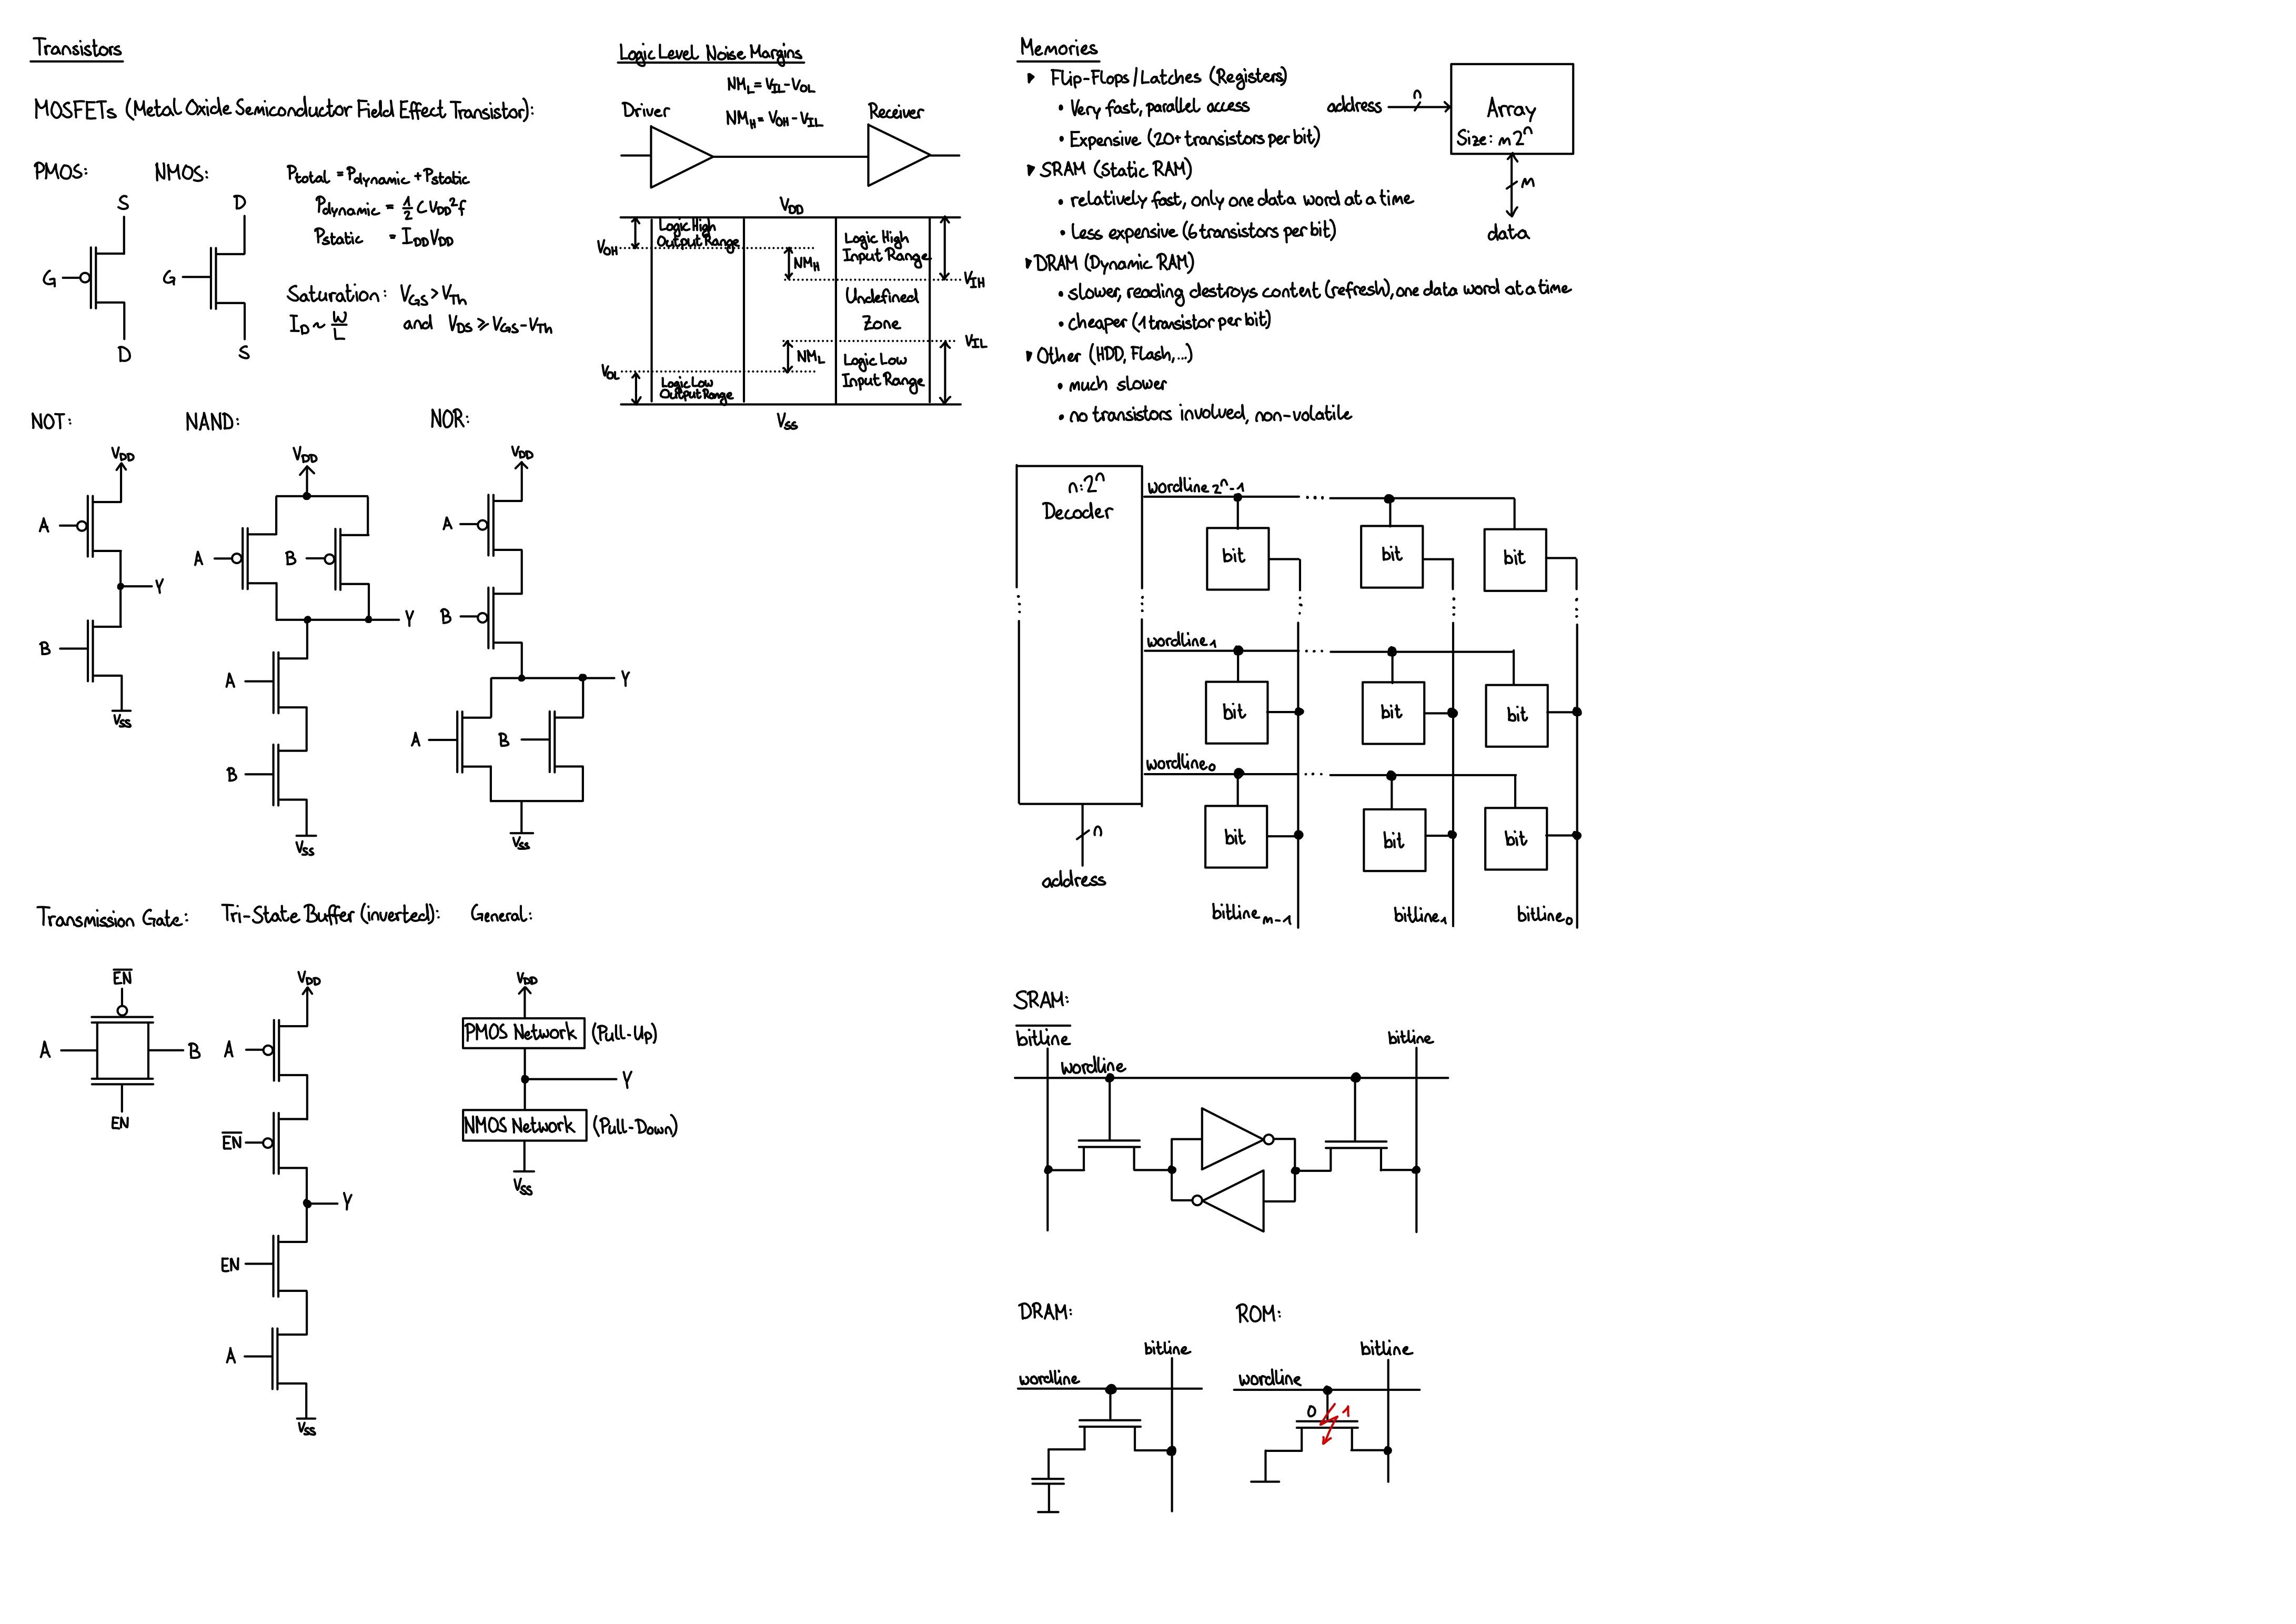 Transistors
MOSFETs (Metal Oxide Semiconductor Field Effect Transistor):
PMOS:
S
G
D
NMOS:
D
G
S
P_total = P_dynamic + P_static
P_dynamic = 1/2 C V_DD² f
P_static = I_DD V_DD
Saturation: V_GS > V_Th
I_D ~ W/L and V_DS ≥ V_GS - V_Th
NOT:
V_DD
A
Y
B
V_SS
NAND:
V_DD
A
B
Y
A
B
V_SS
NOR:
V_DD
A
B
Y
A
B
V_SS
Transmission Gate:
E̅N̅
A
B
EN
Tri-State Buffer (inverted):
V_DD
A
E̅N̅
Y
EN
A
V_SS
General:
V_DD
PMOS Network (Pull-Up)
Y
NMOS Network (Pull-Down)
V_SS
Logic Level Noise Margins
NM_L = V_IL - V_OL
NM_H = V_OH - V_IL
Driver
Receiver
V_DD
Logic High
Output Range
V_OH
NM_H
Logic High
Input Range
V_IH
Undefined
Zone
V_IL
NM_L
V_OL
Logic Low
Output Range
Logic Low
Input Range
V_SS
Memories
▸ Flip-Flops/Latches (Registers)
• Very fast, parallel access
• Expensive (20+ transistors per bit)
▸ SRAM (Static RAM)
• relatively fast, only one data word at a time
• Less expensive (6 transistors per bit)
▸ DRAM (Dynamic RAM)
• slower, reading destroys content (refresh), one data word at a time
• cheaper (1 transistor per bit)
▸ Other (HDD, Flash,...)
• much slower
• no transistors involved, non-volatile
address
n
Array
Size: m2ⁿ
m
data
n:2ⁿ
Decoder
wordline_2ⁿ-1
...
bit
bit
bit
wordline_1
...
bit
bit
bit
wordline_0
...
bit
bit
bit
n
address
bitline_m-1
bitline_1
bitline_0
SRAM:
b̅i̅t̅l̅i̅n̅e̅
bitline
wordline
DRAM:
bitline
wordline
ROM:
bitline
wordline
0
1